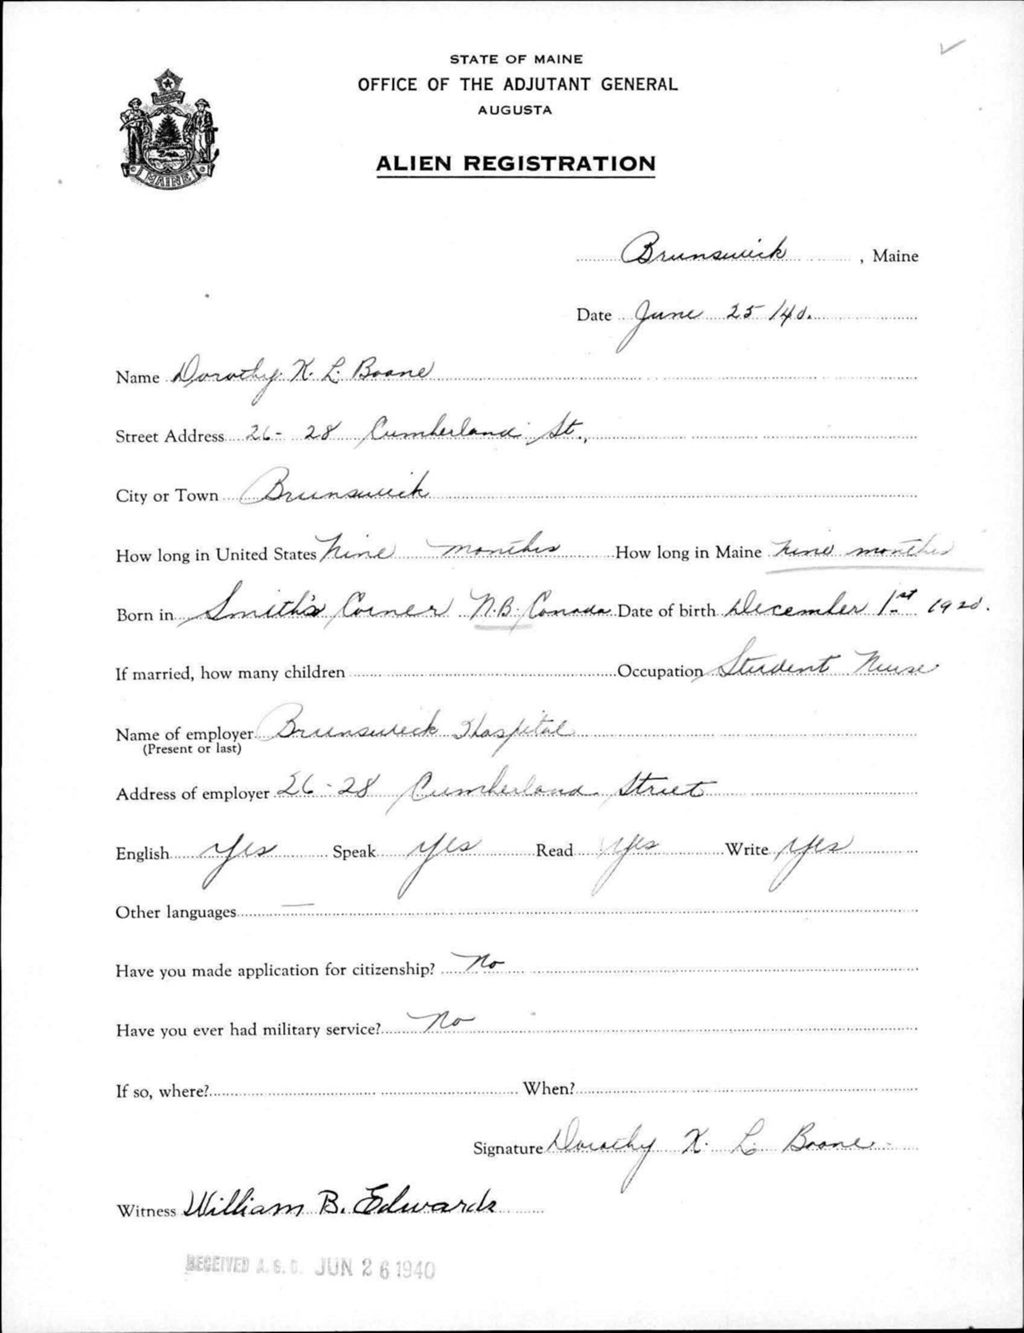 STATE OF MAINE
OFFICE OF THE ADJUTANT GENERAL
AUGUSTA
MAINE
ALIEN REGISTRATION
Brunswick, Maine
Date June 25/40.
Name Dorothy K. L. Boone
Street Address 26-28 Cumberland St.,
City or Town Brunswick
How long in United States Nine months How long in Maine Nine months
Born in Smith's Corner N.B. Canada Date of birth December 1st 1920.
If married, how many children Occupation Student Nurse
Name of employer Brunswick Hospital
(Present or last)
Address of employer 26-28 Cumberland Street
English Yes Speak Yes Read Yes Write Yes
Other languages —
Have you made application for citizenship? No
Have you ever had military service? No
If so, where? When?
Signature Dorothy K. L. Boone
Witness William B. Edwards
RECEIVED A.G.O. JUN 26 1940